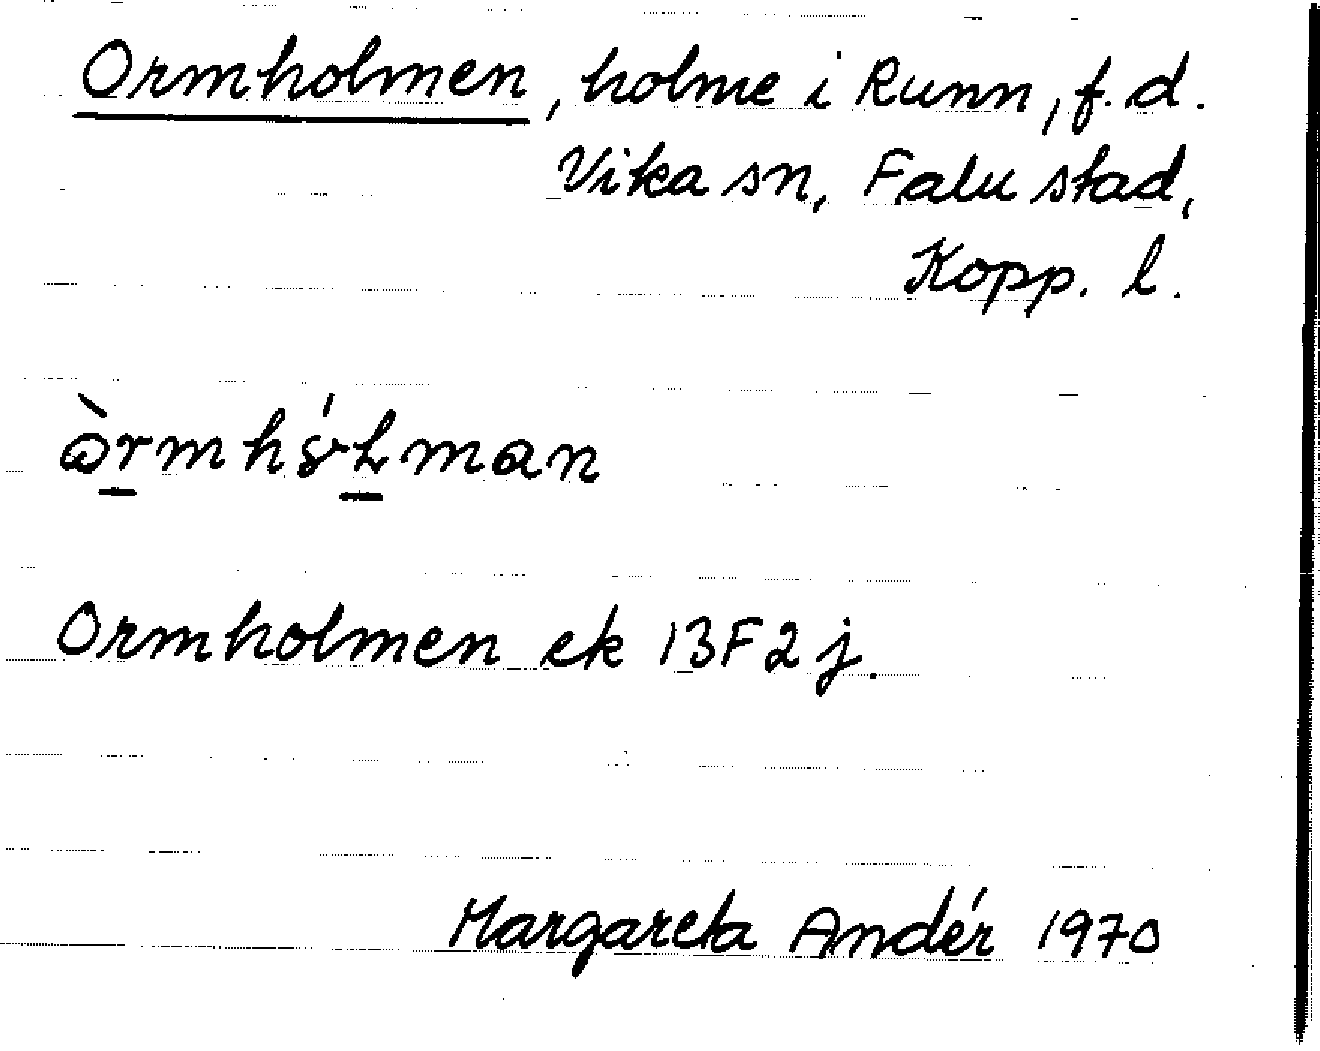 Ormholmen, holme i Runn, f.d.
Vika sn, Falu stad,
Kopp. l.
Ormholmen ek 13F2j.
Margareta Andér 1970